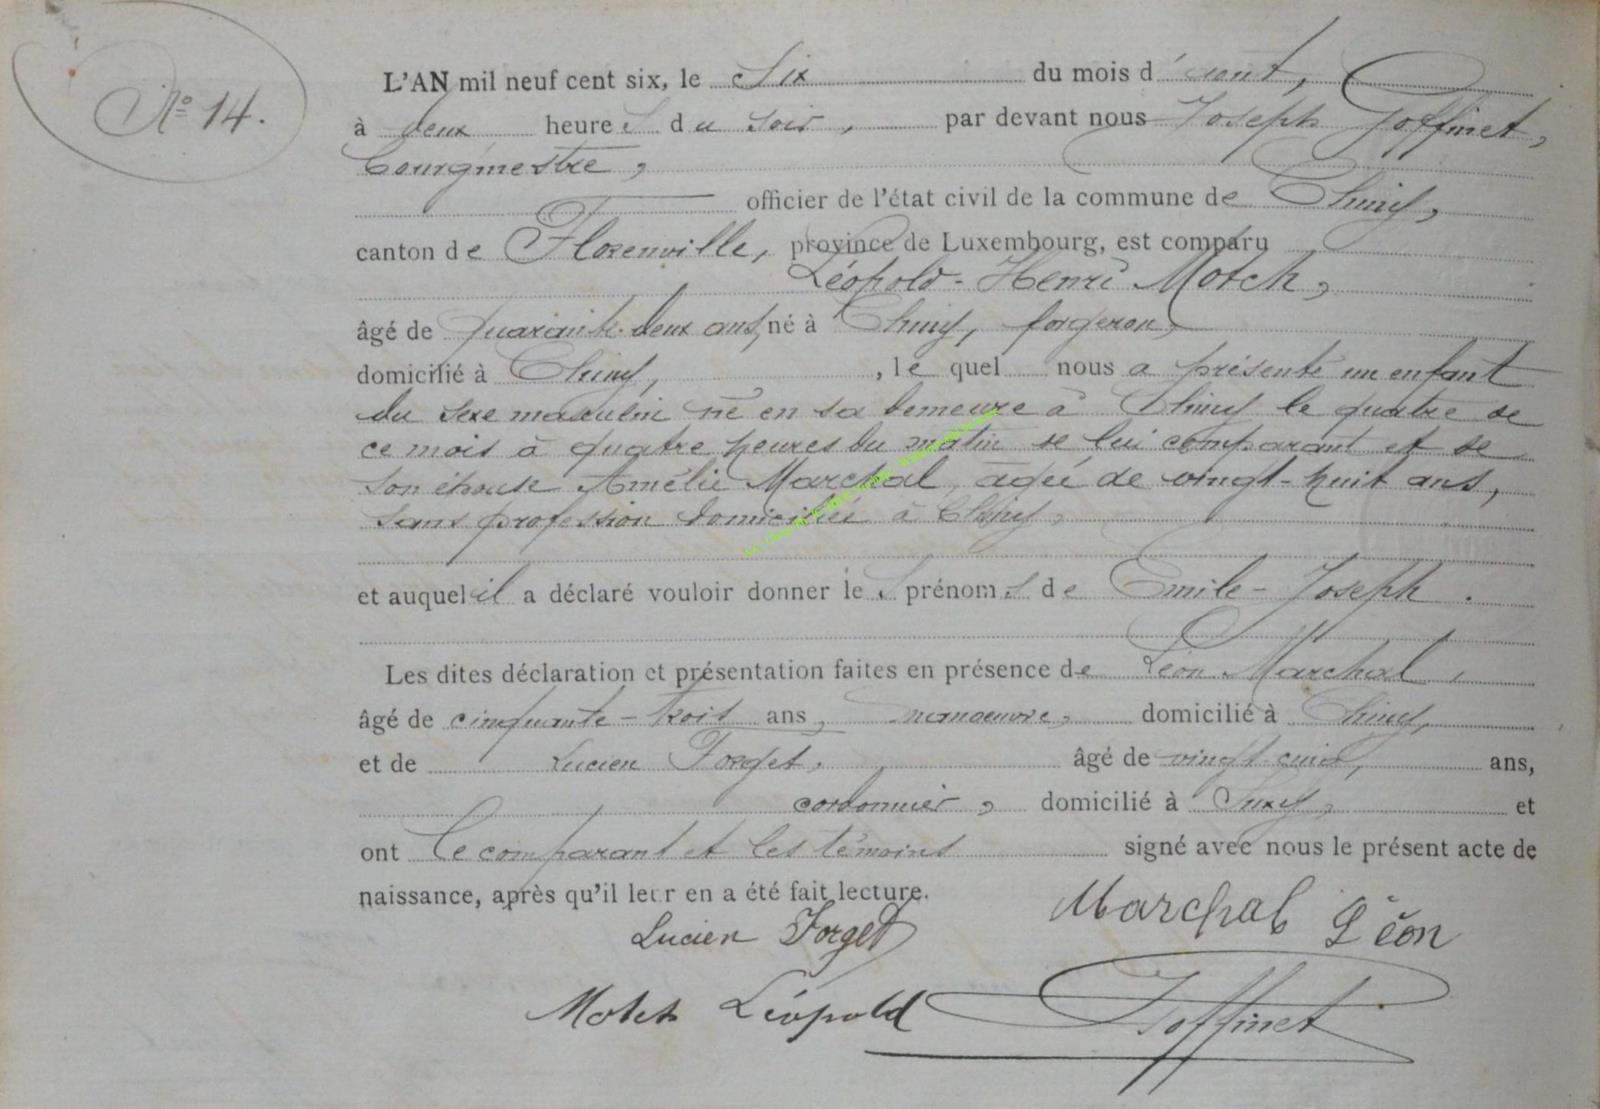 N° 14.
L'AN mil neuf cent six, le Six du mois d'août,
à deux heures du soir, par devant nous Joseph Goffinet,
bourgmestre,
officier de l'état civil de la commune de Chiny,
canton de Florenville, province de Luxembourg, est comparu
Léopold-Henri Motch,
âgé de quarante-deux ans, né à Chiny, forgeron,
domicilié à Chiny, , le quel nous a présenté un enfant
du sexe masculin né en sa demeure à Chiny le quatre de
ce mois à quatre heures du matin de lui comparant et de
son épouse Amélie Marchal, agée de vingt-huit ans,
sans profession domiciliée à Chiny,
et auquel il a déclaré vouloir donner les prénoms de Emile-Joseph.
Les dites déclaration et présentation faites en présence de Léon Marchal,
âgé de cinquante-trois ans, manoeuvre, domicilié à Chiny,
et de Lucien Forget, âgé de vingt-cinq, ans,
cordonnier, domicilié à Suxy, et
ont le comparant et les témoins signé avec nous le présent acte de
naissance, après qu'il leur en a été fait lecture.
Lucien Forget Marchal Léon
Motch Léopold Goffinet